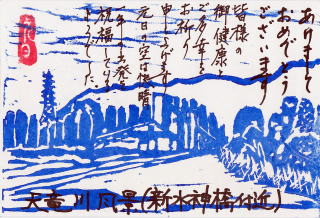 あけまして
おめでとう
ございます
皆様の
御健康と
ご多幸を
お祈り
申し上げます
元旦の空は快晴
一年の出発を
祝福している
ようでした。
天竜川風景(新水神橋付近)